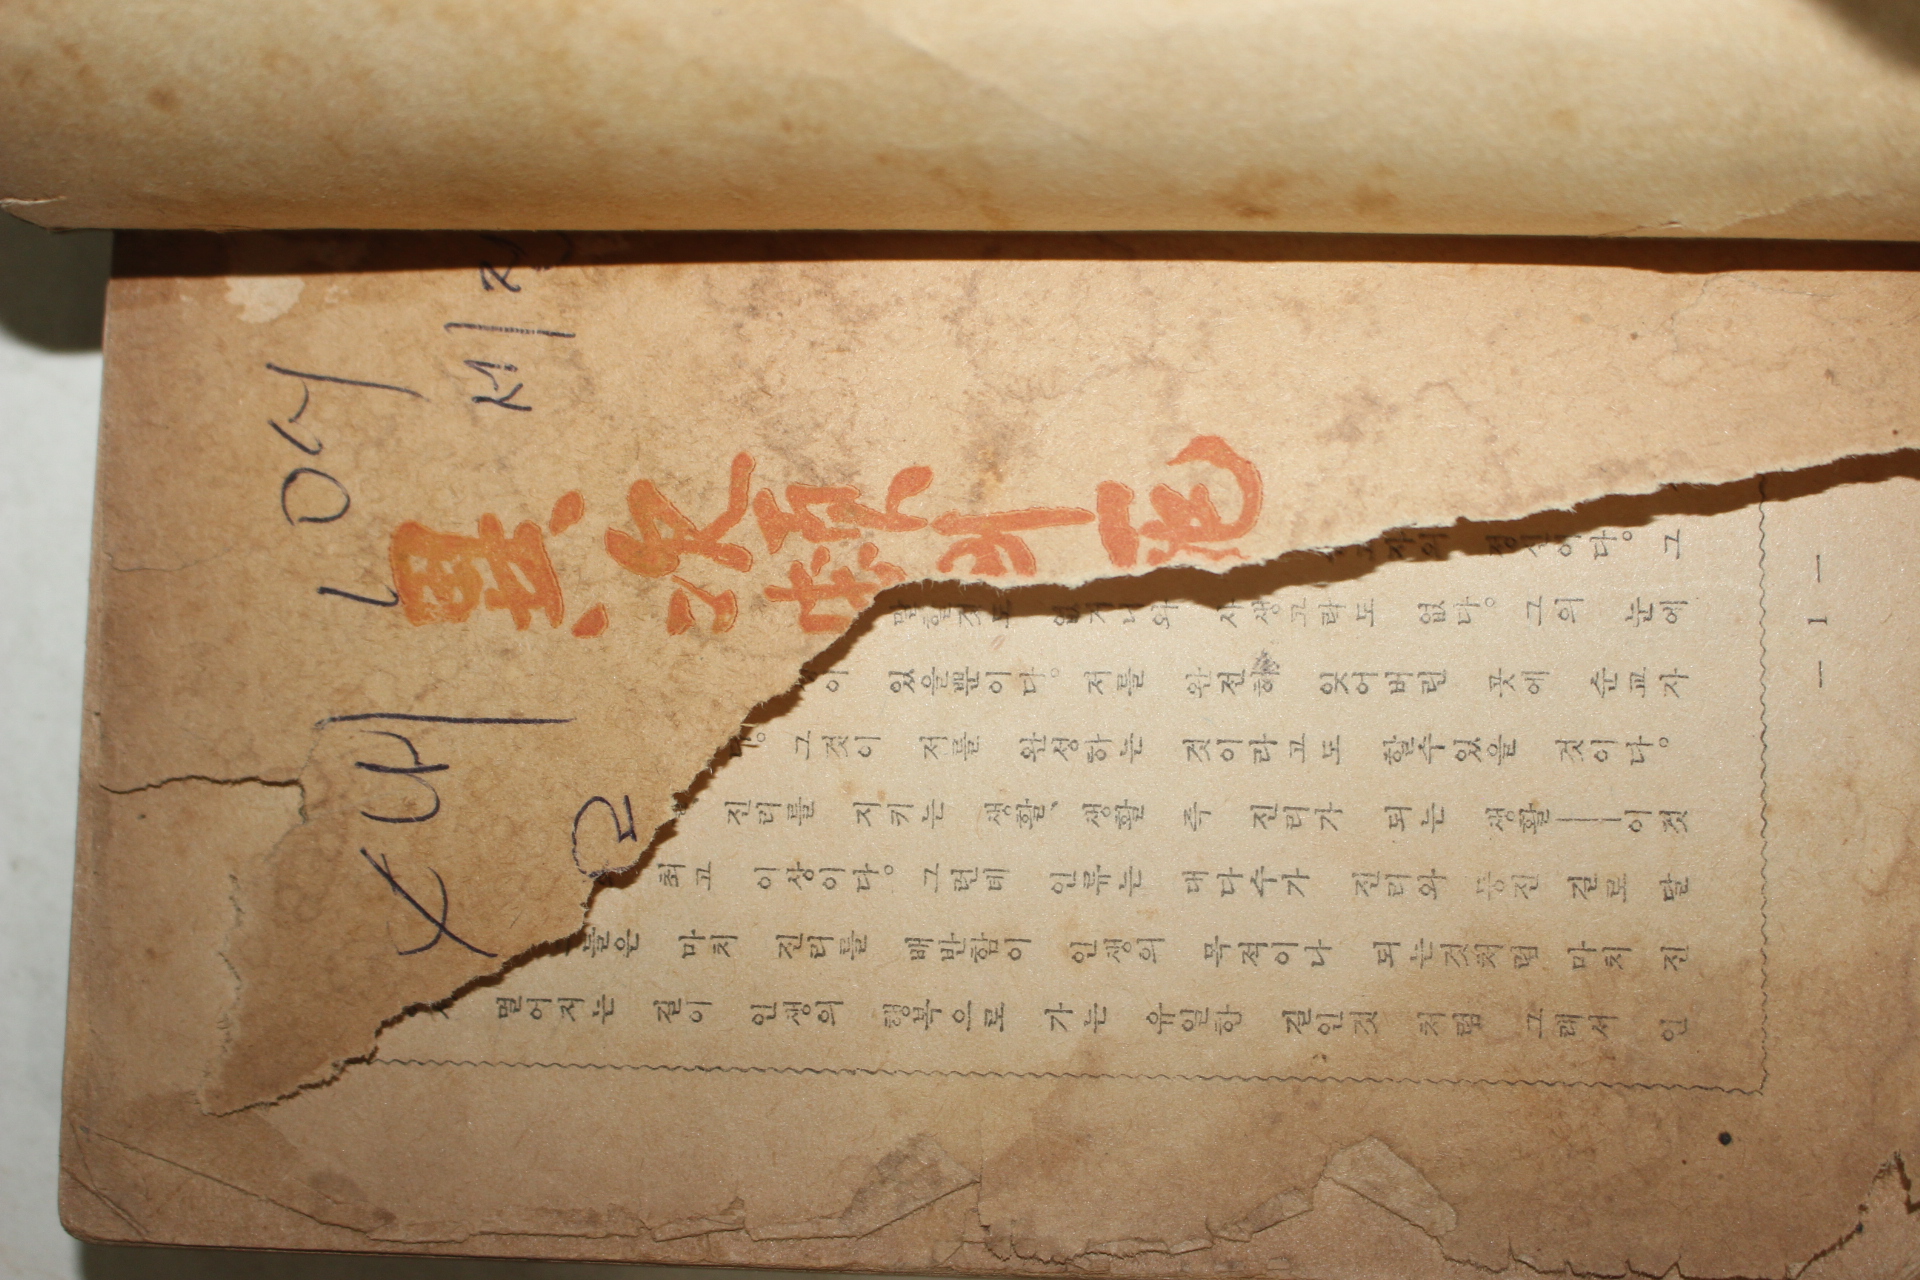 異次頓의死
정신이다。 그
말할것도 없거니와 사생고락도 없다。 그의 눈에
이 있을뿐이다。 저를 완전히 잊어버린 곳에 순교자
다。 그것이 저를 완성하는 것이라고도 할수있을 것이다。
진리를 지키는 생활、 생활 즉 진리가 되는 생활——이것
최고 이상이다。 그런데 인류는 대다수가 진리와 등진 길로 달
들은 마치 진리를 배반함이 인생의 목적이나 되는것처럼 마치 진
멀어저는 길이 인생의 행복으로 가는 유일한 길인것 처럼 그래서 인
— 1 —